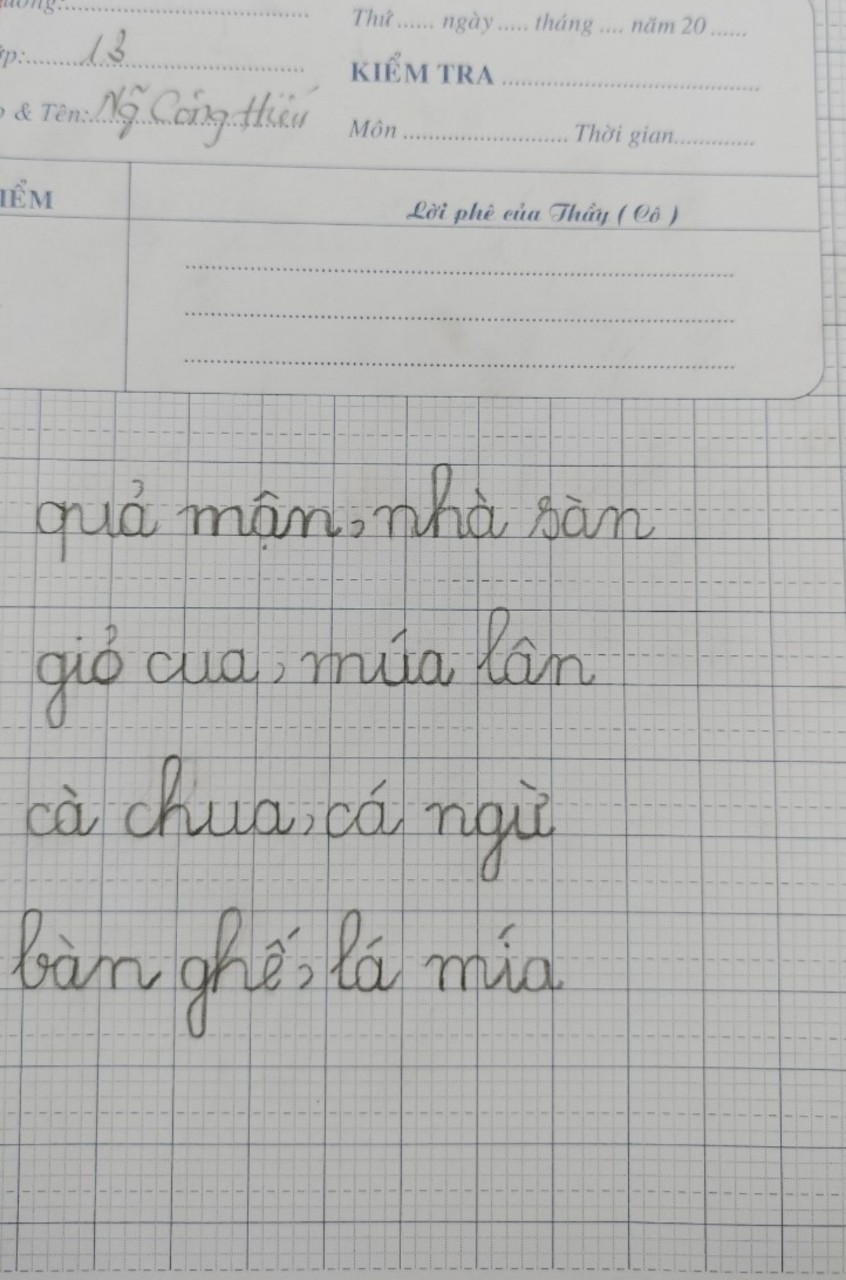 Thứ ...... ngày ..... tháng .... năm 20 ......
13
KIỂM TRA
& Tên: Ng~ Công Hiếu
Môn ......................... Thời gian............
Lời phê của Thầy ( Cô )
quả mận, nhà sàn
giỏ cua, múa lân
cà chua, cá ngừ
bàn ghế, lá mía